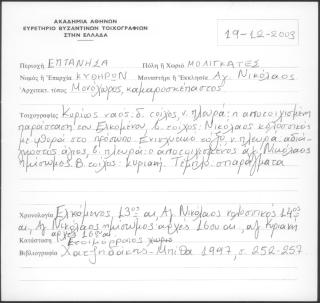 ΑΚΑΔΗΜΙΑ ΑΘΗΝΩΝ
ΕΥΡΕΤΗΡΙΟ ΒΥΖΑΝΤΙΝΩΝ ΤΟΙΧΟΓΡΑΦΙΩΝ
ΣΤΗΝ ΕΛΛΑΔΑ
19-12-2003
Περιοχή ΕΠΤΑΝΗΣΑ Πόλη ή Χωριό ΜΟΛΙΓΚΑΤΕΣ
Νομός ή Ἐπαρχία ΚΥΘΗΡΩΝ Μοναστήρι ή Ἐκκλησία Αγ. Νικόλαος
Ἀρχιτεκτ. τύπος Μονόχωρος, καμαροσκέπαστος
Τοιχογραφίες Κυρίως ναός: δ. τοίχος, ν. πλευρά: η αποτοιχισμένη
παράσταση του Ελκομένου, β. τοίχος: Νικόλαος κολοσσικός
με φθορά στο πρόσωπο. Ενισχυτικό τόξο, ν. πλευρά: αδιά-
γνωστος άγιος, β. πλευρά: ο αποτοιχισμένος αγ. Νικόλαος
ημίσωμος. Β. τοίχος: κυριακή. Τέμπλο: σπαράγματα
Χρονολογία Ελκόμενος, 13ος αι, Αγ. Νικόλαος κολοσσικός 14ος
αι, Αγ. Νικόλαος ημίσωμος αρχές 16ου αι, αγ. Κυριακή
αρχές 16ου αι
Κατάσταση Ετοιμόρροπος
Βιβλιογραφία Χατζηδάκης - Μπίθα 1997, σ. 252-257